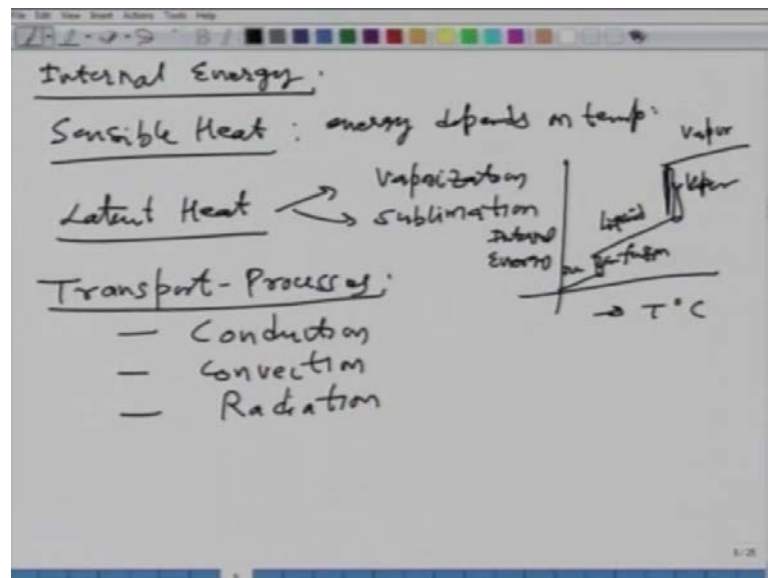 File Edit View Insert Actions Tools Help
Internal Energy.
Sensible Heat : energy depends on temp.
Latent Heat
Vaporization
Sublimation
Transport-Processes:
— Conduction
— Convection
— Radiation
Vapor
Liquid
fusion
Internal
Energy
→ T°C